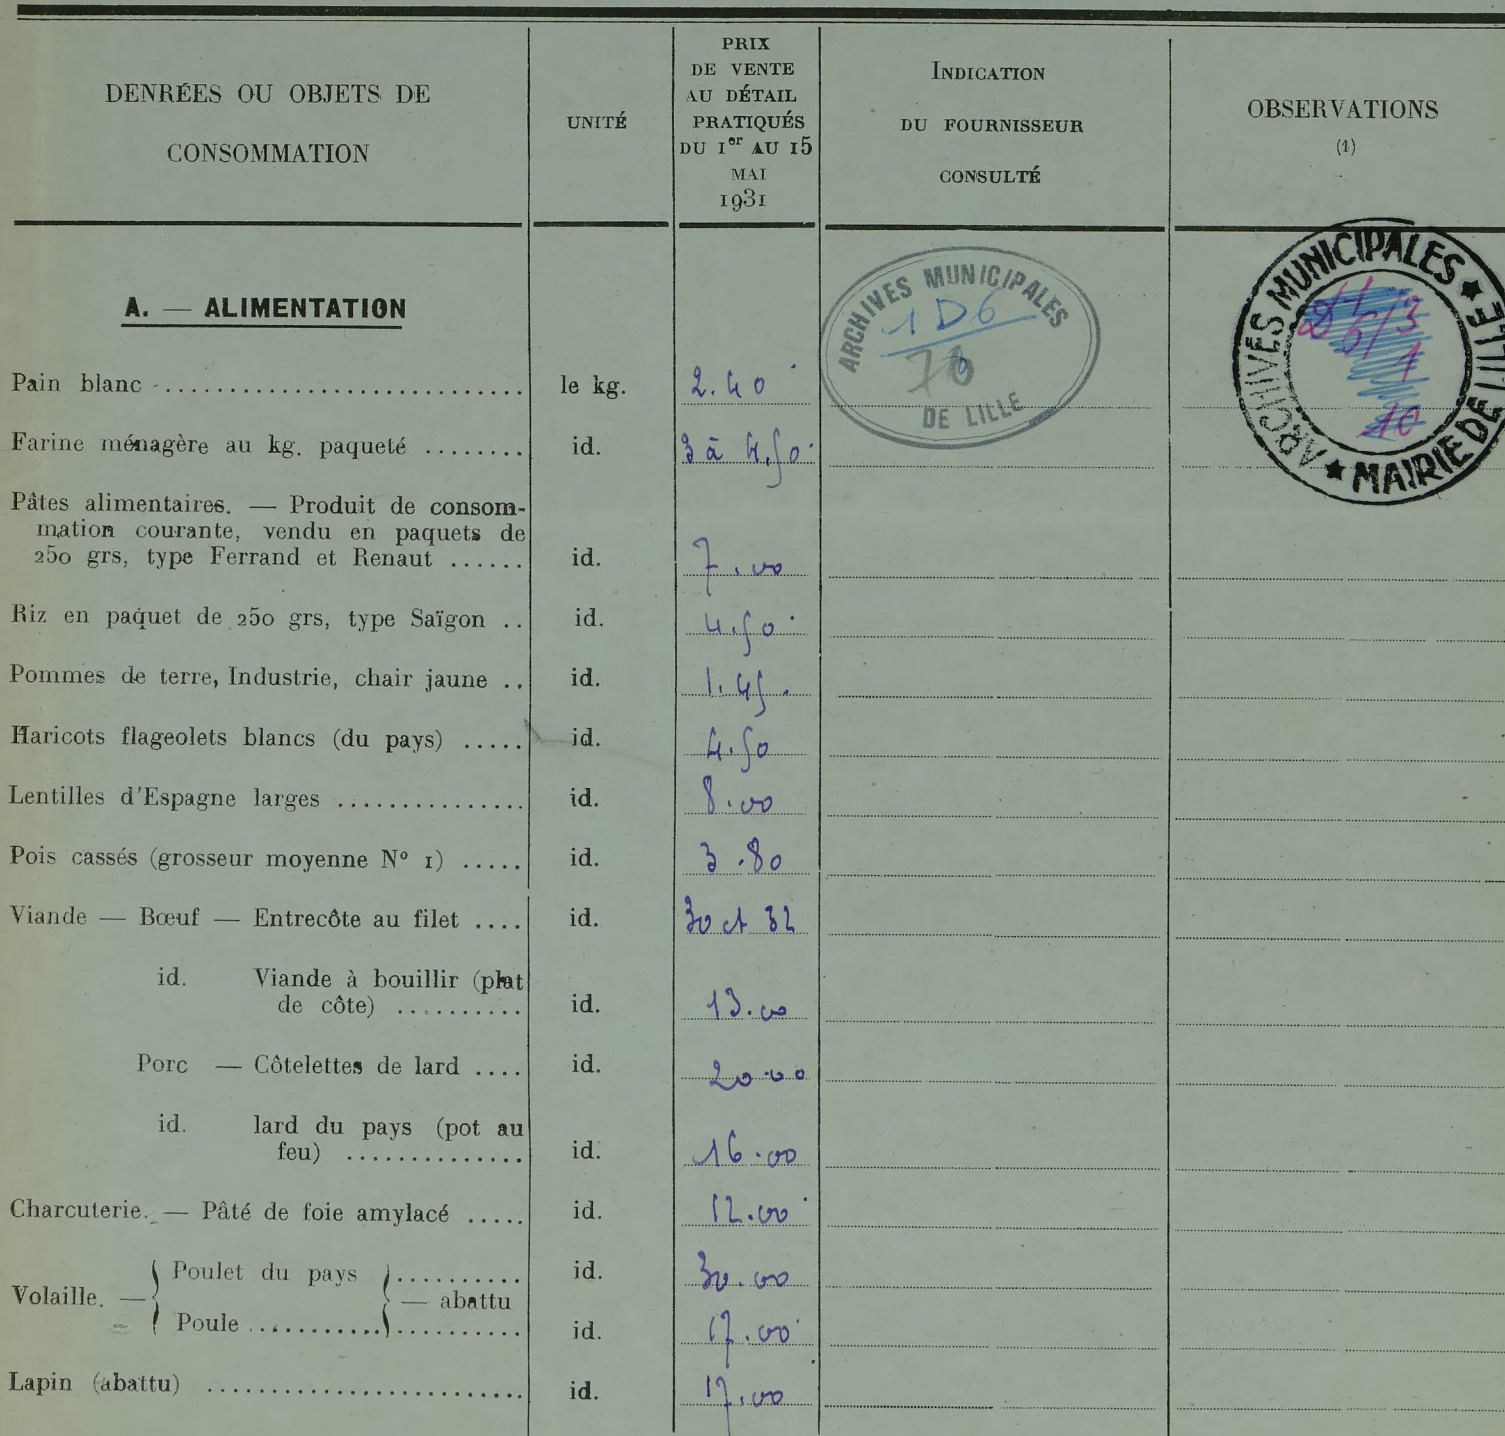 DENRÉES OU OBJETS DE
CONSOMMATION
UNITÉ
PRIX
DE VENTE
AU DÉTAIL
PRATIQUÉS
DU 1er AU 15
MAI
1931
INDICATION
DU FOURNISSEUR
CONSULTÉ
OBSERVATIONS
(1)
ARCHIVES MUNICIPALES
1 D6
DE LILLE
ARCHIVES MUNICIPALES ★ MAIRIE DE LILLE ★
A. — ALIMENTATION
Pain blanc ............................ le kg. 2.40
Farine ménagère au kg. paqueté ........ id. 3 à 4,50
Pâtes alimentaires. — Produit de consom-
mation courante, vendu en paquets de
250 grs, type Ferrand et Renaut ...... id. 7.00
Riz en paquet de 250 grs, type Saïgon .. id. 4.50
Pommes de terre, Industrie, chair jaune .. id. 1.45
Haricots flageolets blancs (du pays) ..... id. 4.50
Lentilles d'Espagne larges ............... id. 8.00
Pois cassés (grosseur moyenne N° 1) ..... id. 3.80
Viande — Bœuf — Entrecôte au filet .... id. 30 et 32
id. Viande à bouillir (plat
de côte) .......... id. 13.00
Porc — Côtelettes de lard .... id. 20.00
id. lard du pays (pot au
feu) .............. id. 16.00
Charcuterie. — Pâté de foie amylacé ..... id. 12.00
Poulet du pays .......... id. 30.00
Volaille. — — abattu
Poule .................... id. 17.00
Lapin (abattu) ........................ id. 17.00